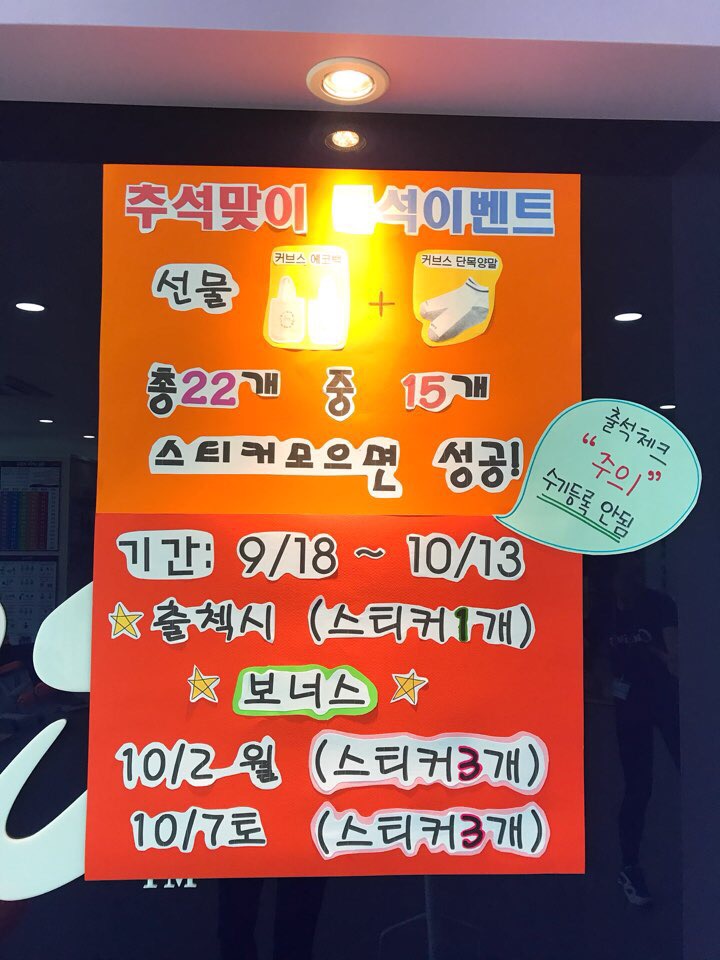 추석맞이 석이벤트
선물
커브스 에코백
+
커브스 단목양말
총22개 중 15개
스티커모으면 성공!
출석체크
"주의"
수기등록 안됨
기간: 9/18 ~ 10/13
출첵시 (스티커1개)
보너스
10/2 월 (스티커3개)
10/7토 (스티커3개)
TM